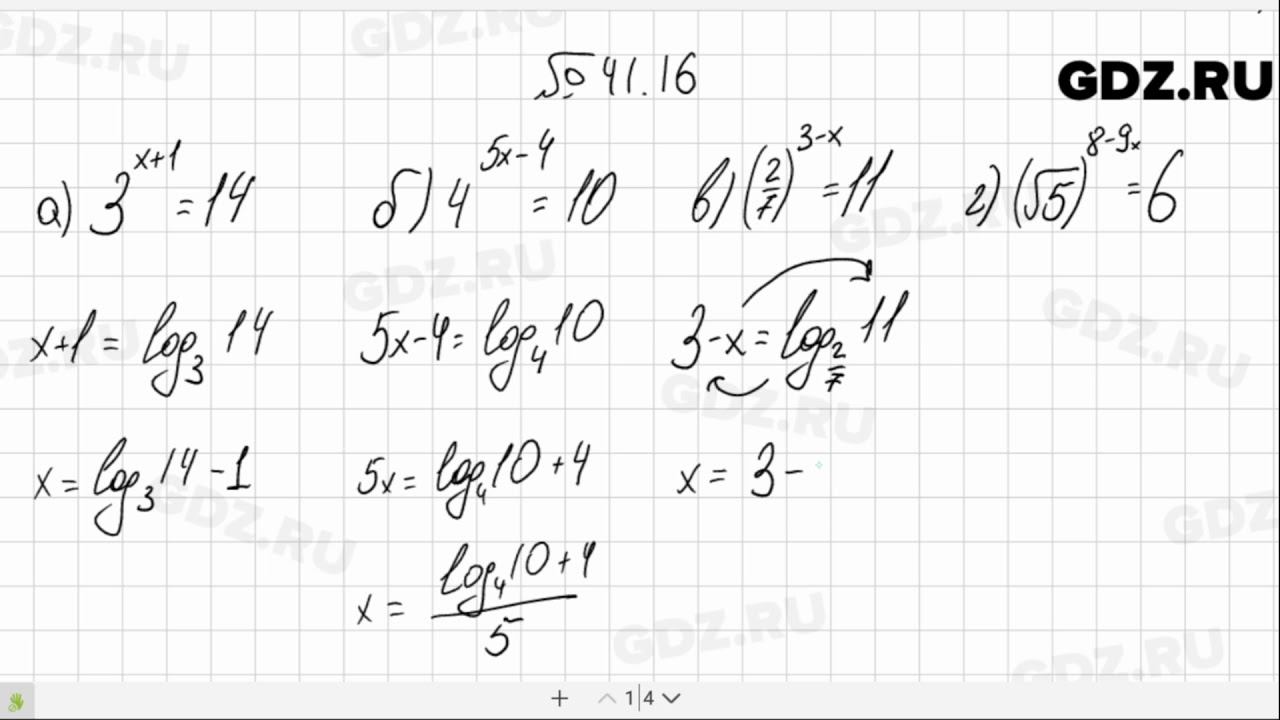 GDZ.RU
№ 41.16
а) 3^(x+1) = 14
б) 4^(5x-4) = 10
в) (2/7)^(3-x) = 11
г) (√5)^(8-9x) = 6
x+1 = log₃ 14
5x-4 = log₄ 10
3-x = log_(2/7) 11
x = log₃ 14 - 1
5x = log₄ 10 + 4
x = 3 -
x = (log₄ 10 + 4)/5
+ 1|4